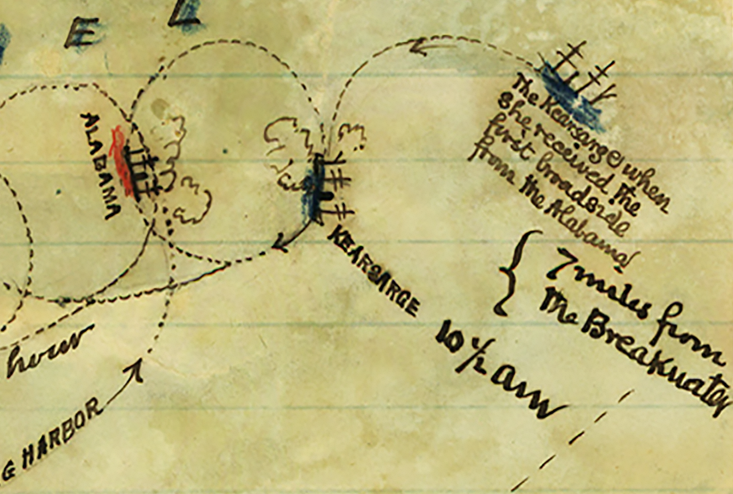 E L
The Kearsarge when
she received the
first broadside
from the Alabama
ALABAMA
KEARSARGE
7 miles from
the Breakwater
10 1/2 am
hour
G HARBOR